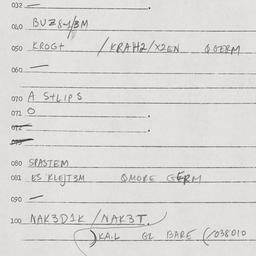 032 —
040 BUZ8-1/3M
050 KROG+ /KRAH2/X2EN QGERM
060 —
070 A S+LIPS
071 O
072
080 SPASTEM
081 ES KLEJT3M QMORE GERM
090 —
100 NAK3D1K /NAK3T
KAIL GL BARE (/038010